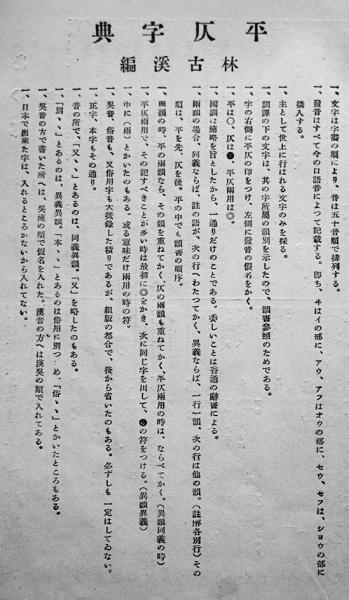 平仄字典
林古溪編
一、文字は字書の順により、音は五十音順で排列する。
一、發音はすべて今の口語音によつて記載する。即ち、ヰはイの部に、アウ、アフはオウの部に、セウ、セフは、ショウの部に
插入する。
一、主として世上に行はれる文字のみを採る。
一、訓譯の下の文字は、其の字所屬の韻別を示したので、韻書參照のためである。
一、字の右側に平仄の印をつけ、左側に發音の假名をかく。
一、平は○、仄は●、平仄兩用は◎。
一、國訓は簡略を旨としたから、一通りだけのことである。委しいことは普通の辭書による。
一、兩韻の場合、同義ならば、註の語が、次の行へわたつてかく、異義ならば、一行一韻、次の行は他の韻。(註解各別行)その
順は、平を先、仄を後、平の中でも韻書の順序。
一、兩韻の時、平の兩韻なら、その韻を重ねてかく、仄の兩韻も重ねてかく、平仄兩用の時は、ならべてかく。(異韻同義の時)
一、平仄兩用で、その記すべきことが多い時は最初に◎をかき、次に同じ字を出して、●の符をつける。(異韻異義)
一、中に(兩)とかいたのもある。或る意味だけ兩用の時の符。
一、正字、本字もその通り。
一、吳音、俗音も、又俗用字も大抵錄した積りであるが、組版の都合で、後から省いたのもある。必ずしも一定はしてゐない。
一、音の所で、「又、、」とあるのは、同義異韻。「又」を略したのもある。
一、「別、、」とあるのは、異義異韻。「本、、」とあるのは俗用に別つため、「俗、、」とかいたところもある。
一、吳音の方で書いた所へは、吳漢の順で假名を入れた。漢音の方へは漢吳の順で入れてある。
一、日本で出來た字は、入れるところがないから入れてない。